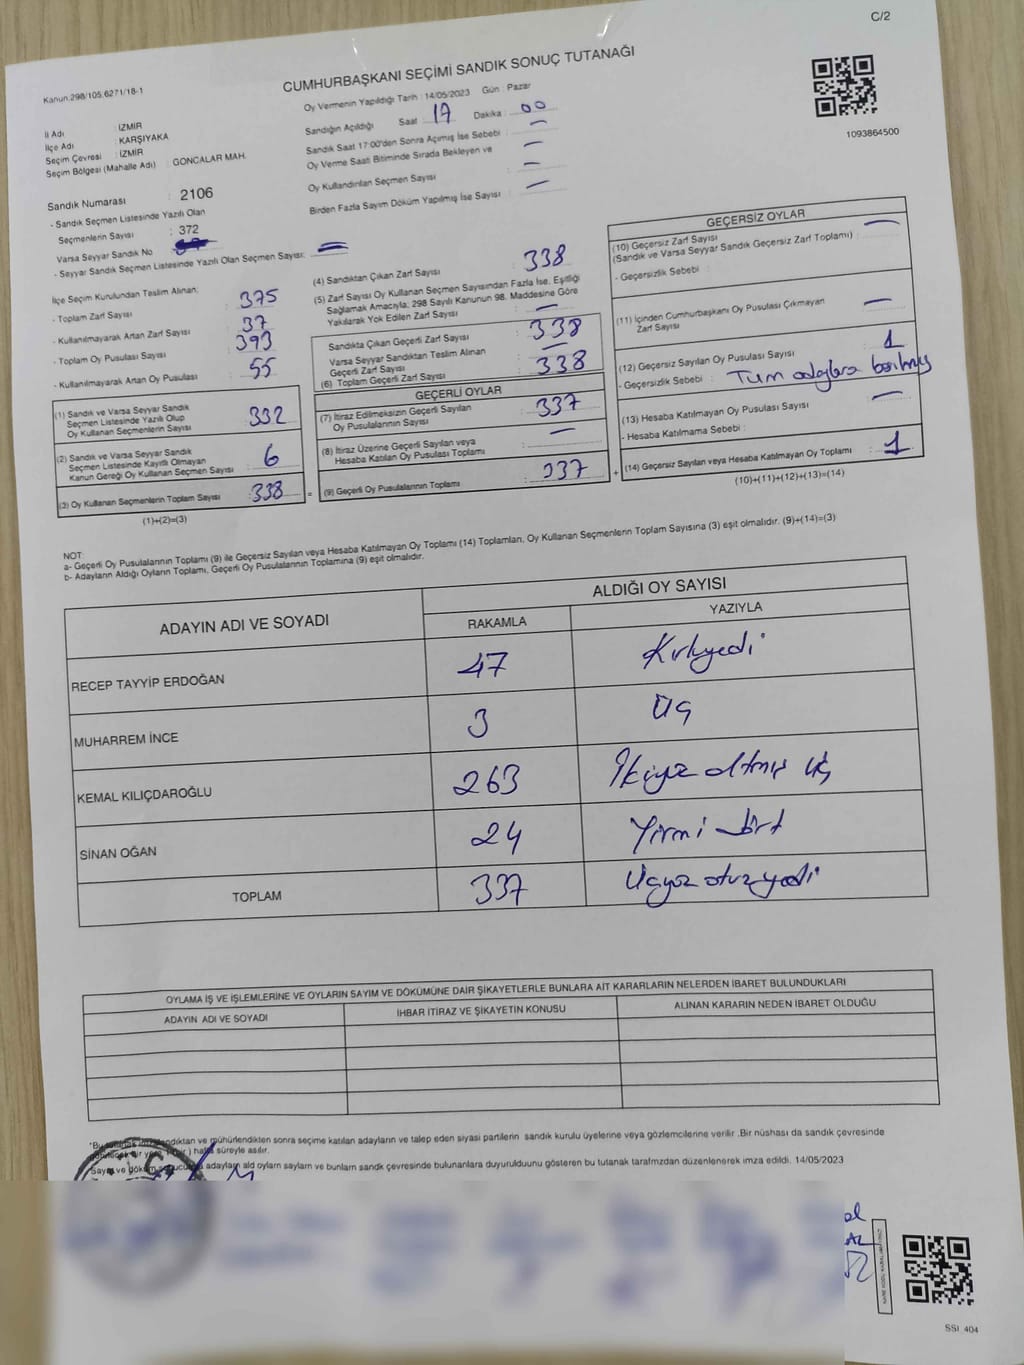 C/2
Kanun.298/105.6271/18-1
CUMHURBAŞKANI SEÇİMİ SANDIK SONUÇ TUTANAĞI
Oy Vermenin Yapıldığı Tarih : 14/05/2023 Gün : Pazar
İl Adı : İZMİR
İlçe Adı : KARŞIYAKA
Seçim Çevresi : İZMİR
Seçim Bölgesi (Mahalle Adı) : GONCALAR MAH.
Sandığın Açıldığı Saat : 17 Dakika : 00
Sandık Saat 17:00'den Sonra Açımış İse Sebebi : —
Oy Verme Saati Bitiminde Sırada Bekleyen ve
Oy Kullandırılan Seçmen Sayısı : —
Birden Fazla Sayım Döküm Yapılmış İse Sayısı : —
1093864500
Sandık Numarası : 2106
- Sandık Seçmen Listesinde Yazılı Olan
Seçmenlerin Sayısı : 372
Varsa Seyyar Sandık No
- Seyyar Sandık Seçmen Listesinde Yazılı Olan Seçmen Sayısı: =
İlçe Seçim Kurulundan Teslim Alınan;
- Toplam Zarf Sayısı : 375
- Kullanılmayarak Artan Zarf Sayısı : 37
- Toplam Oy Pusulası Sayısı : 393
- Kullanılmayarak Artan Oy Pusulası : 55
(1) Sandık ve Varsa Seyyar Sandık
Seçmen Listesinde Yazılı Olup
Oy Kullanan Seçmenlerin Sayısı : 332
(2) Sandık ve Varsa Seyyar Sandık
Seçmen Listesinde Kayıtlı Olmayan
Kanun Gereği Oy Kullanan Seçmen Sayısı : 6
(3) Oy Kullanan Seçmenlerin Toplam Sayısı : 338
(1)+(2)=(3)
(4) Sandıktan Çıkan Zarf Sayısı : 338
(5) Zarf Sayısı Oy Kullanan Seçmen Sayısından Fazla İse, Eşitliği
Sağlamak Amacıyla; 298 Sayılı Kanunun 98. Maddesine Göre
Yakılarak Yok Edilen Zarf Sayısı : —
Sandıkta Çıkan Geçerli Zarf Sayısı : 338
Varsa Seyyar Sandıktan Teslim Alınan
Geçerli Zarf Sayısı : —
(6) Toplam Geçerli Zarf Sayısı : 338
GEÇERLİ OYLAR
(7) İtiraz Edilmeksizin Geçerli Sayılan
Oy Pusulalarının Sayısı : 337
(8) İtiraz Üzerine Geçerli Sayılan veya
Hesaba Katılan Oy Pusulası Toplamı : —
= (9) Geçerli Oy Pusulalarının Toplamı : 337
GEÇERSİZ OYLAR
(10) Geçersiz Zarf Sayısı : —
(Sandık ve Varsa Seyyar Sandık Geçersiz Zarf Toplamı)
- Geçersizlik Sebebi :
(11) İçinden Cumhurbaşkanı Oy Pusulası Çıkmayan
Zarf Sayısı : —
(12) Geçersiz Sayılan Oy Pusulası Sayısı : 1
- Geçersizlik Sebebi : Tüm adaylara basılmış
(13) Hesaba Katılmayan Oy Pusulası Sayısı : —
- Hesaba Katılmama Sebebi :
+ (14) Geçersiz Sayılan veya Hesaba Katılmayan Oy Toplamı : 1
(10)+(11)+(12)+(13)=(14)
NOT:
a- Geçerli Oy Pusulalarının Toplamı (9) ile Geçersiz Sayılan veya Hesaba Katılmayan Oy Toplamı (14) Toplamları, Oy Kullanan Seçmenlerin Toplam Sayısına (3) eşit olmalıdır. (9)+(14)=(3)
b- Adayların Aldığı Oyların Toplamı, Geçerli Oy Pusulalarının Toplamına (9) eşit olmalıdır.
ADAYIN ADI VE SOYADI ALDIĞI OY SAYISI
RAKAMLA YAZIYLA
RECEP TAYYİP ERDOĞAN 47 Kırkyedi
MUHARREM İNCE 3 Üç
KEMAL KILIÇDAROĞLU 263 İkiyüz altmış üç
SİNAN OĞAN 24 Yirmi dört
TOPLAM 337 Üçyüz otuz yedi
OYLAMA İŞ VE İŞLEMLERİNE VE OYLARIN SAYIM VE DÖKÜMÜNE DAİR ŞİKAYETLERLE BUNLARA AİT KARARLARIN NELERDEN İBARET BULUNDUKLARI
ADAYIN ADI VE SOYADI İHBAR İTİRAZ VE ŞİKAYETİN KONUSU ALINAN KARARIN NEDEN İBARET OLDUĞU
mühürlendikten sonra seçime katılan adayların ve talep eden siyasi partilerin sandık kurulu üyelerine veya gözlemcilerine verilir .Bir nüshası da sandık çevresinde
süreyle asılır.
adayların ald oyların saylam ve bunlam sandk çevresinde bulunanlara duyurulduunu gösteren bu tutanak tarafmzdan düzenlenerek imza edildi. 14/05/2023
SSI 404